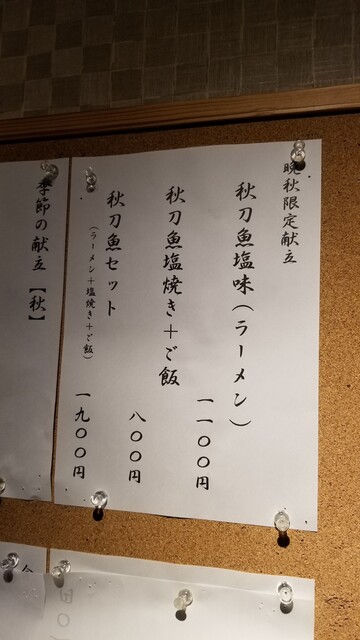 晩秋限定献立
秋刀魚塩味(ラーメン)
一一〇〇円
秋刀魚塩焼き+ご飯
八〇〇円
秋刀魚セット
(ラーメン+塩焼き+ご飯)
一九〇〇円
季節の献立【秋】